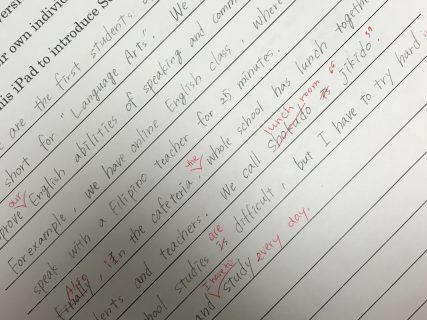 versi
r own individ
his iPad to introduce Sc
e are the first students.
short for "Language Arts". We
our
prove English abilities of speaking and comm
For example, we have online English class, where
speak with a Filipino teacher for 25 minutes.
Also the
Finally, In the cafeteria, whole school has lunch togethe
lunch room " "
dents and teachers. We call shokudo is jikido.
are
hool studies is difficult, but I have to try hard
I have to
and study every day.